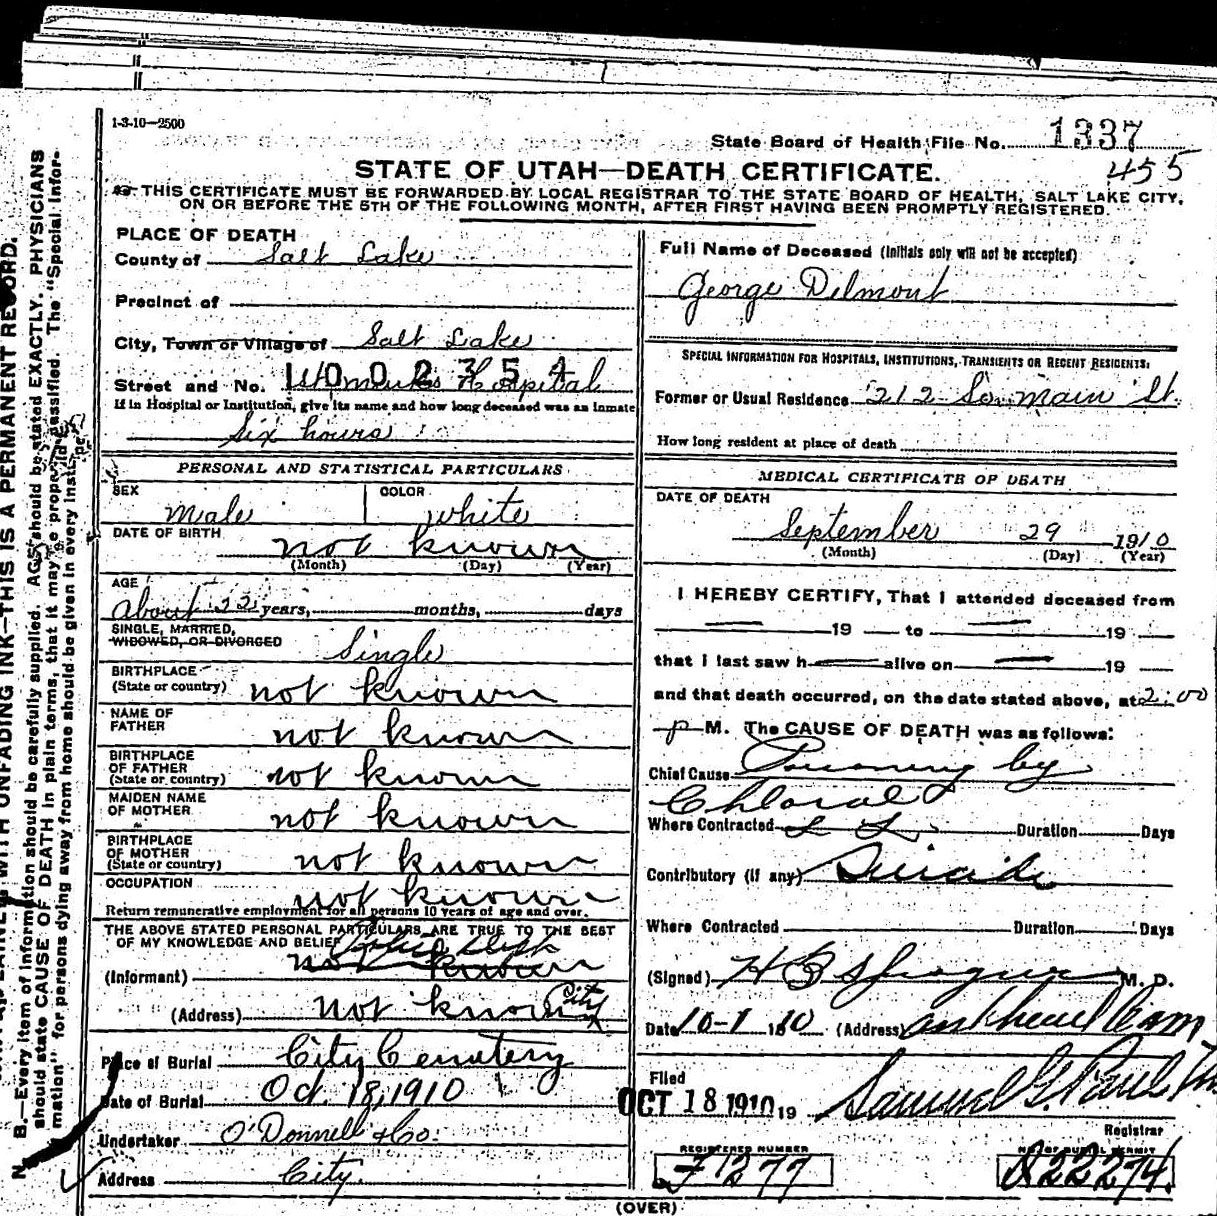 1-3-10—2500
State Board of Health File No. 1337
455
STATE OF UTAH—DEATH CERTIFICATE.
THIS CERTIFICATE MUST BE FORWARDED BY LOCAL REGISTRAR TO THE STATE BOARD OF HEALTH, SALT LAKE CITY,
ON OR BEFORE THE 5TH OF THE FOLLOWING MONTH, AFTER FIRST HAVING BEEN PROMPTLY REGISTERED.
PLACE OF DEATH
County of Salt Lake
Precinct of
City, Town or Village of Salt Lake
Street and No. Hospital
1002354
If in Hospital or Institution, give its name and how long deceased was an inmate
Six hours
PERSONAL AND STATISTICAL PARTICULARS
SEX male COLOR white
DATE OF BIRTH not known
(Month) (Day) (Year)
AGE
about 22 years, months, days
SINGLE, MARRIED,
WIDOWED, OR DIVORCED Single
BIRTHPLACE
(State or country) not known
NAME OF
FATHER not known
BIRTHPLACE
OF FATHER
(State or country) not known
MAIDEN NAME
OF MOTHER not known
BIRTHPLACE
OF MOTHER
(State or country) not known
OCCUPATION not known
Return remunerative employment for all persons 10 years of age and over.
THE ABOVE STATED PERSONAL PARTICULARS ARE TRUE TO THE BEST
OF MY KNOWLEDGE AND BELIEF
(Informant) not known
(Address) not known City
Place of Burial City Cemetery
Date of Burial Oct. 18, 1910
Undertaker O'Donnell & Co.
Address City.
Full Name of Deceased (Initials only will not be accepted)
George Delmont
SPECIAL INFORMATION FOR HOSPITALS, INSTITUTIONS, TRANSIENTS OR RECENT RESIDENTS:
Former or Usual Residence 212 So. main St.
How long resident at place of death
MEDICAL CERTIFICATE OF DEATH
DATE OF DEATH
September 29 1910
(Month) (Day) (Year)
I HEREBY CERTIFY, That I attended deceased from
19 to 19
that I last saw h alive on 19
and that death occurred, on the date stated above, at 2:00
p M. The CAUSE OF DEATH was as follows:
Chief Cause by
Chloral
Where Contracted S L. Duration Days
Contributory (if any) Suicide
Where Contracted Duration Days
(Signed) H B Sprague M. D.
Date 10-1 1910 (Address)
Filed
OCT 18 1910 19 Samuel G. Paul
Registrar
REGISTERED NUMBER
F1277
NO. OF BURIAL PERMIT
A22274.
(OVER)
N. B.—Every item of information should be carefully supplied. AGE should be stated EXACTLY. PHYSICIANS
should state CAUSE OF DEATH in plain terms, that it may be properly classified. The "Special Infor-
mation" for persons dying away from home should be given in every
WITH UNFADING INK—THIS IS A PERMANENT RECORD.